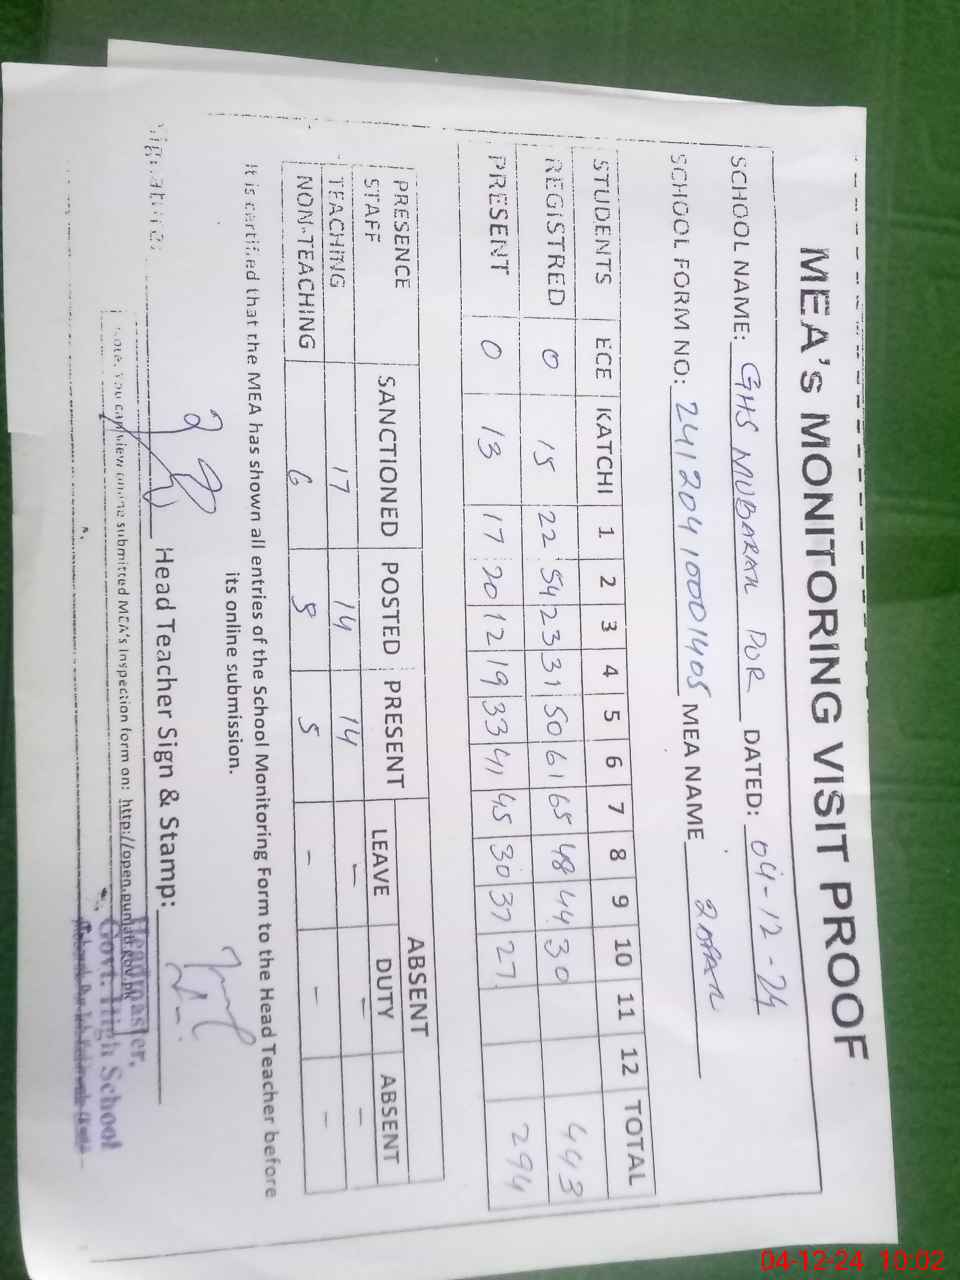 MEA's MONITORING VISIT PROOF
SCHOOL NAME: GHS MUBARAK POR DATED: 04-12-24
SCHOOL FORM NO: 24120410001405 MEA NAME
STUDENTS ECE KATCHI 1 2 3 4 5 6 7 8 9 10 11 12 TOTAL
REGISTRED 0 15 22 54 23 31 50 61 65 48 44 30 443
PRESENT 0 13 17 20 12 19 33 41 45 30 37 27 294
PRESENCE SANCTIONED POSTED PRESENT ABSENT
STAFF LEAVE DUTY ABSENT
TEACHING 17 14 14 - - -
NON-TEACHING 6 5 5 - - -
It is certified that the MEA has shown all entries of the School Monitoring Form to the Head Teacher before
its online submission.
Signature: Head Teacher Sign & Stamp:
Note: You can view online submitted MEA's Inspection form on: http://open.punjab.gov.pk
Headmaster,
Govt. High School
04-12-24 10:02